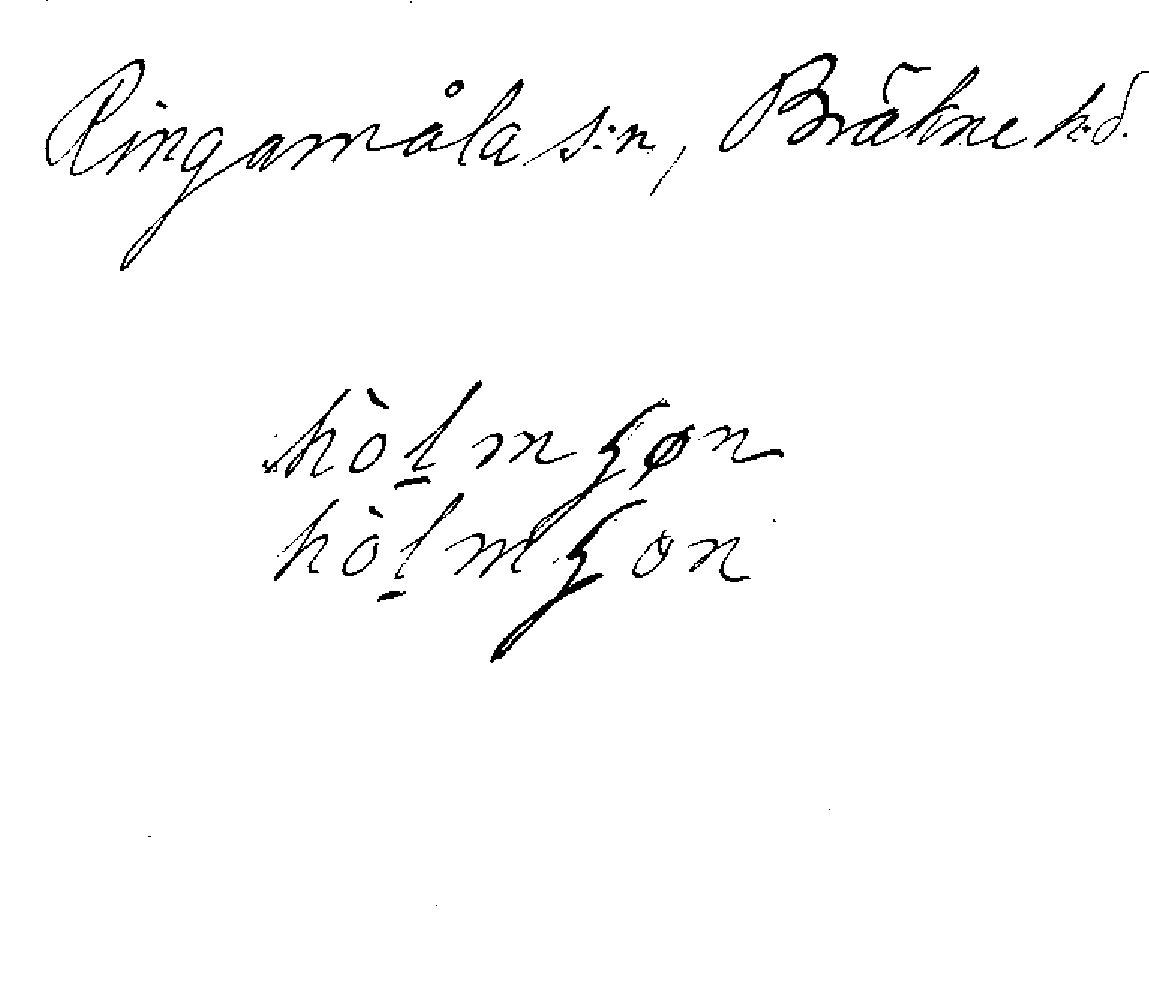 Ringamåla s:n, Bräkne h:d.
hòl̲mʂøn
hòl̲mʂon